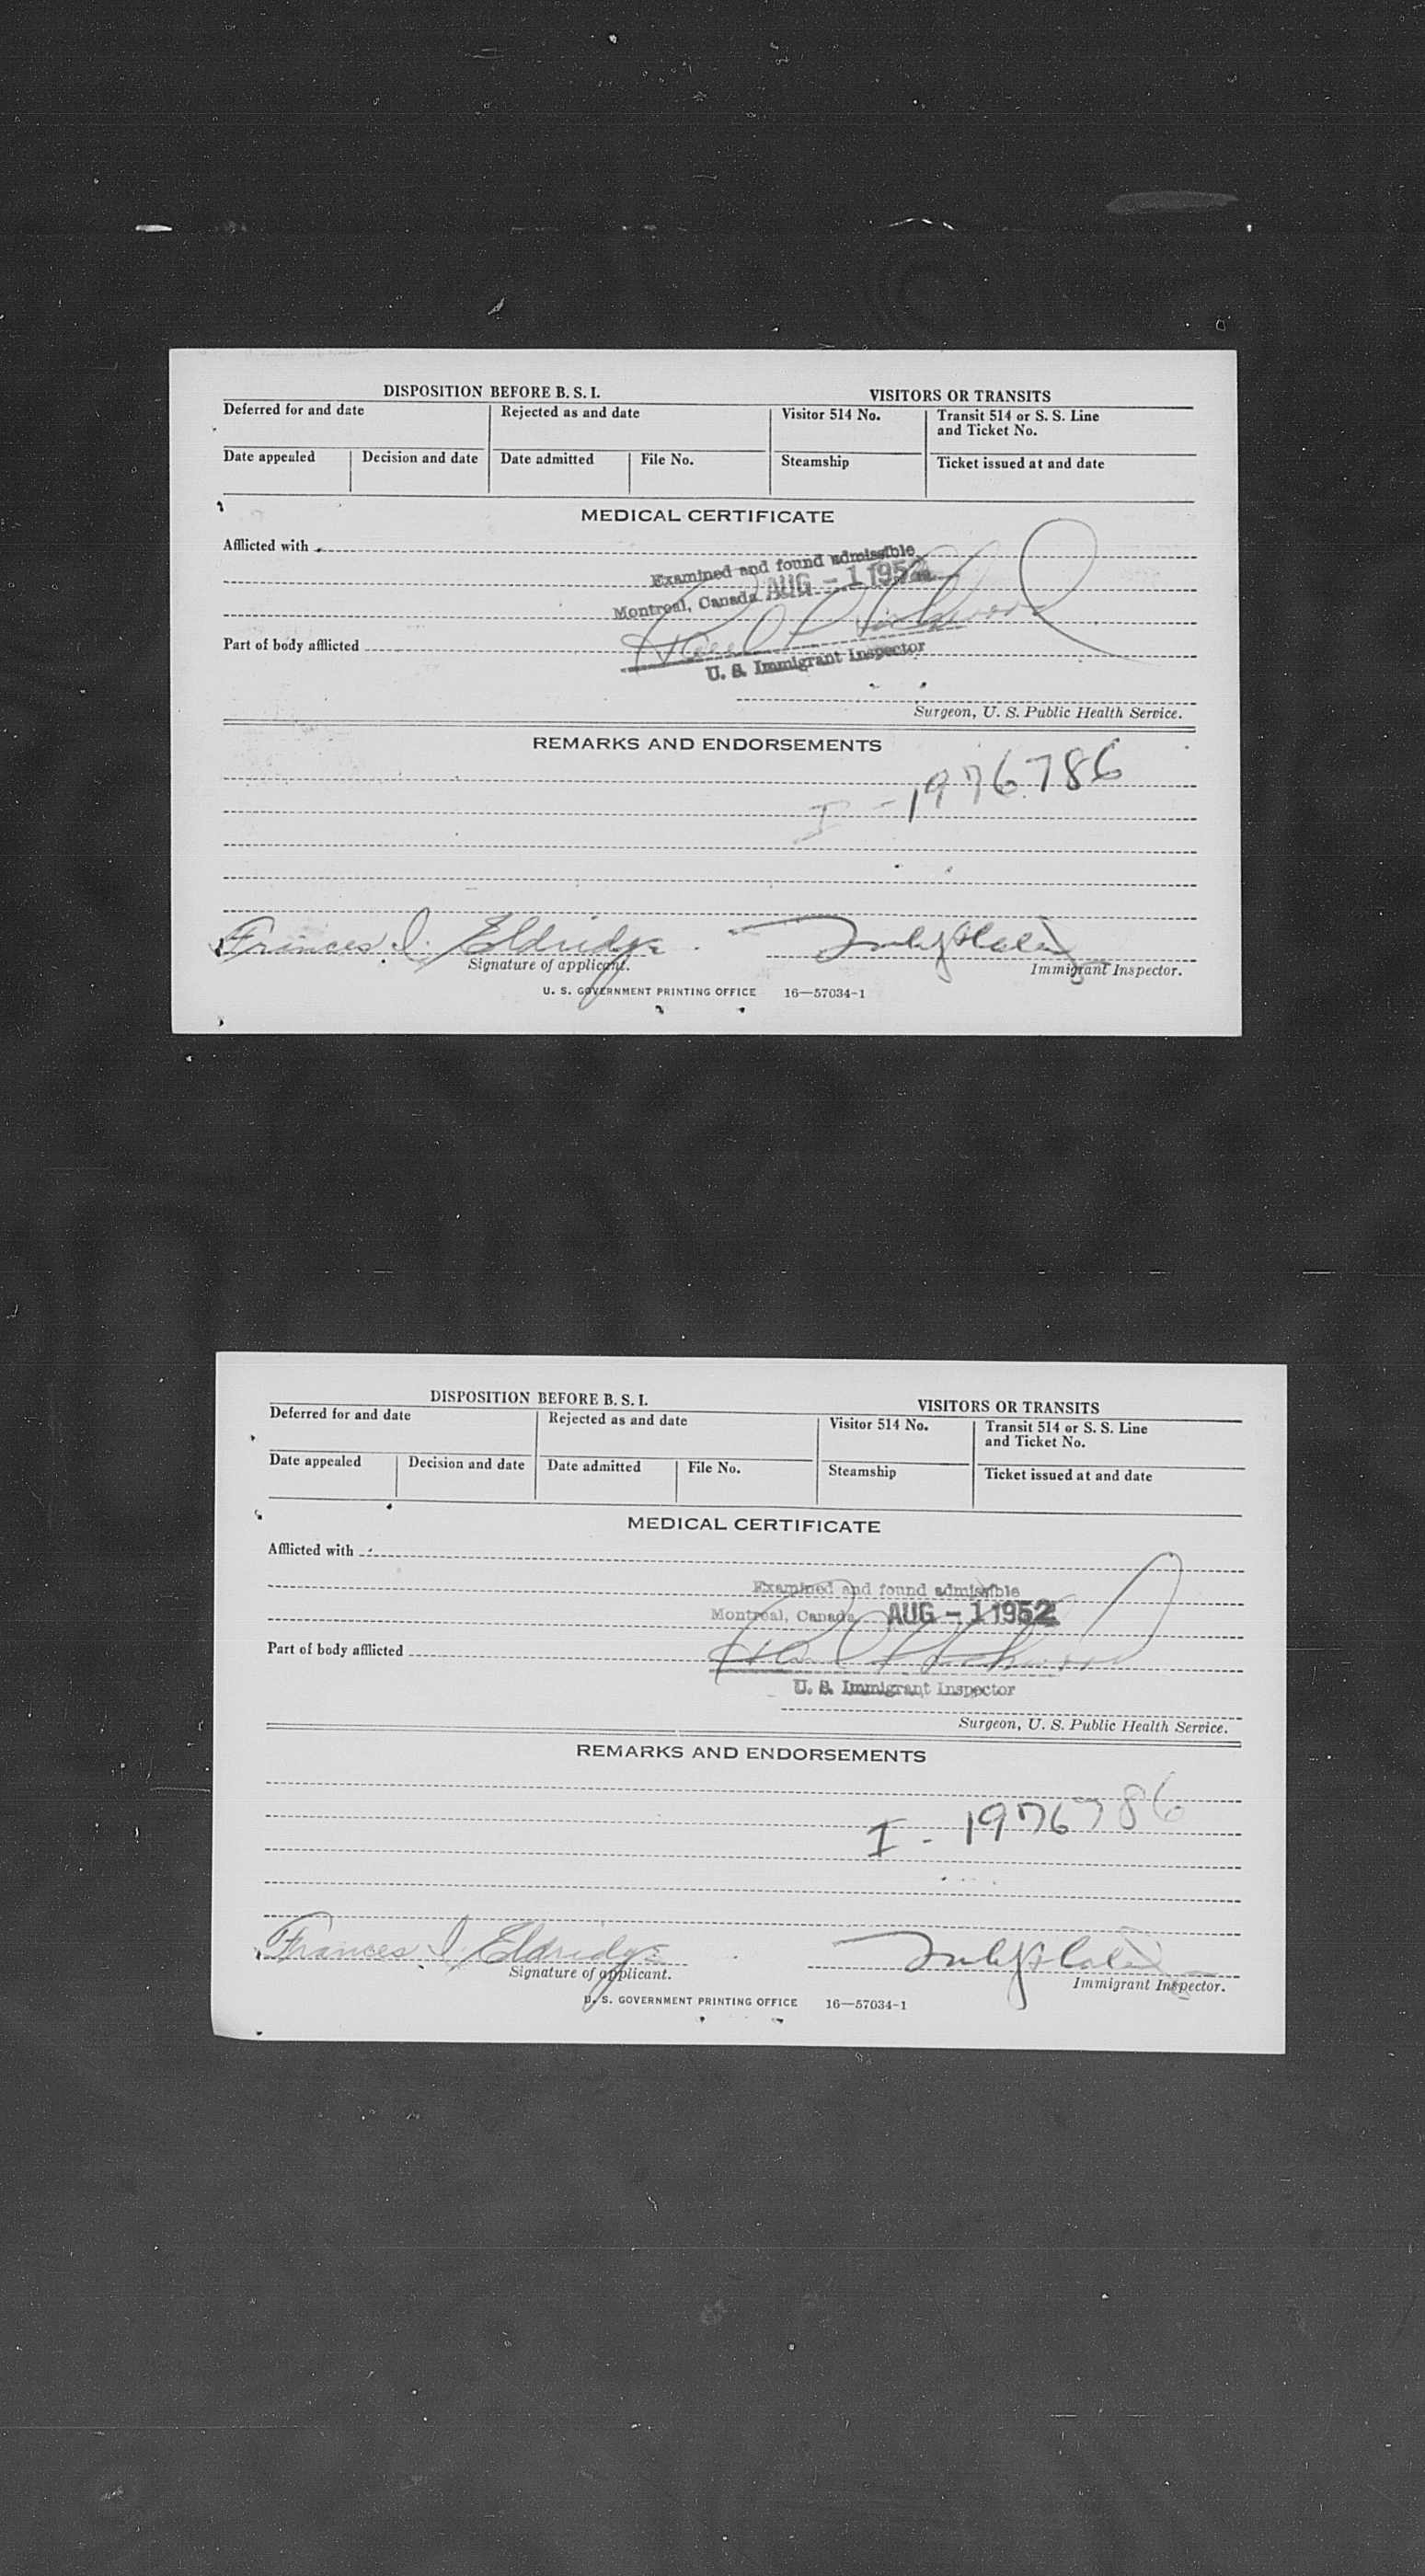 DISPOSITION BEFORE B. S. I.
VISITORS OR TRANSITS
Deferred for and date
Rejected as and date
Visitor 514 No.
Transit 514 or S. S. Line
and Ticket No.
Date appealed
Decision and date
Date admitted
File No.
Steamship
Ticket issued at and date
MEDICAL CERTIFICATE
Afflicted with
Examined and found admissible
Montreal, Canada AUG - 1 1952
Part of body afflicted
U. S. Immigrant Inspector
Surgeon, U. S. Public Health Service.
REMARKS AND ENDORSEMENTS
I - 1976786
Frances I. Eldridge
Signature of applicant.
Immigrant Inspector.
U. S. GOVERNMENT PRINTING OFFICE 16—57034-1
DISPOSITION BEFORE B. S. I.
VISITORS OR TRANSITS
Deferred for and date
Rejected as and date
Visitor 514 No.
Transit 514 or S. S. Line
and Ticket No.
Date appealed
Decision and date
Date admitted
File No.
Steamship
Ticket issued at and date
MEDICAL CERTIFICATE
Afflicted with
Examined and found admissible
Montreal, Canada AUG - 1 1952
Part of body afflicted
U. S. Immigrant Inspector
Surgeon, U. S. Public Health Service.
REMARKS AND ENDORSEMENTS
I - 1976786
Frances I Eldridge
Signature of applicant.
Immigrant Inspector.
U. S. GOVERNMENT PRINTING OFFICE 16—57034-1